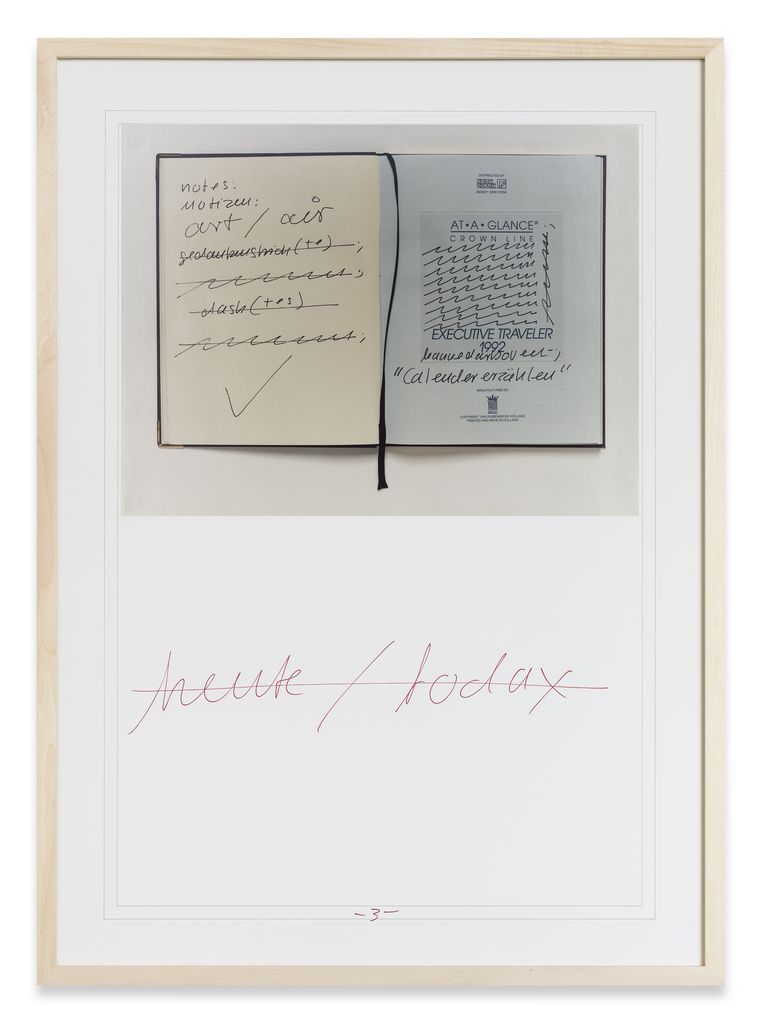 notes:
notizen:
art / air
gedankenstrich(+e) ;
dash(+es)
DISTRIBUTED BY
SIDNEY, NEW YORK
AT•A•GLANCE®
CROWN LINE
EXECUTIVE TRAVELER
1992
hanne darboven-;
"Calender erzählen"
MANUFACTURED BY
COPYRIGHT VAN RIJMENAM BV HOLLAND
PRINTED AND MADE IN HOLLAND
heute / today
-3-